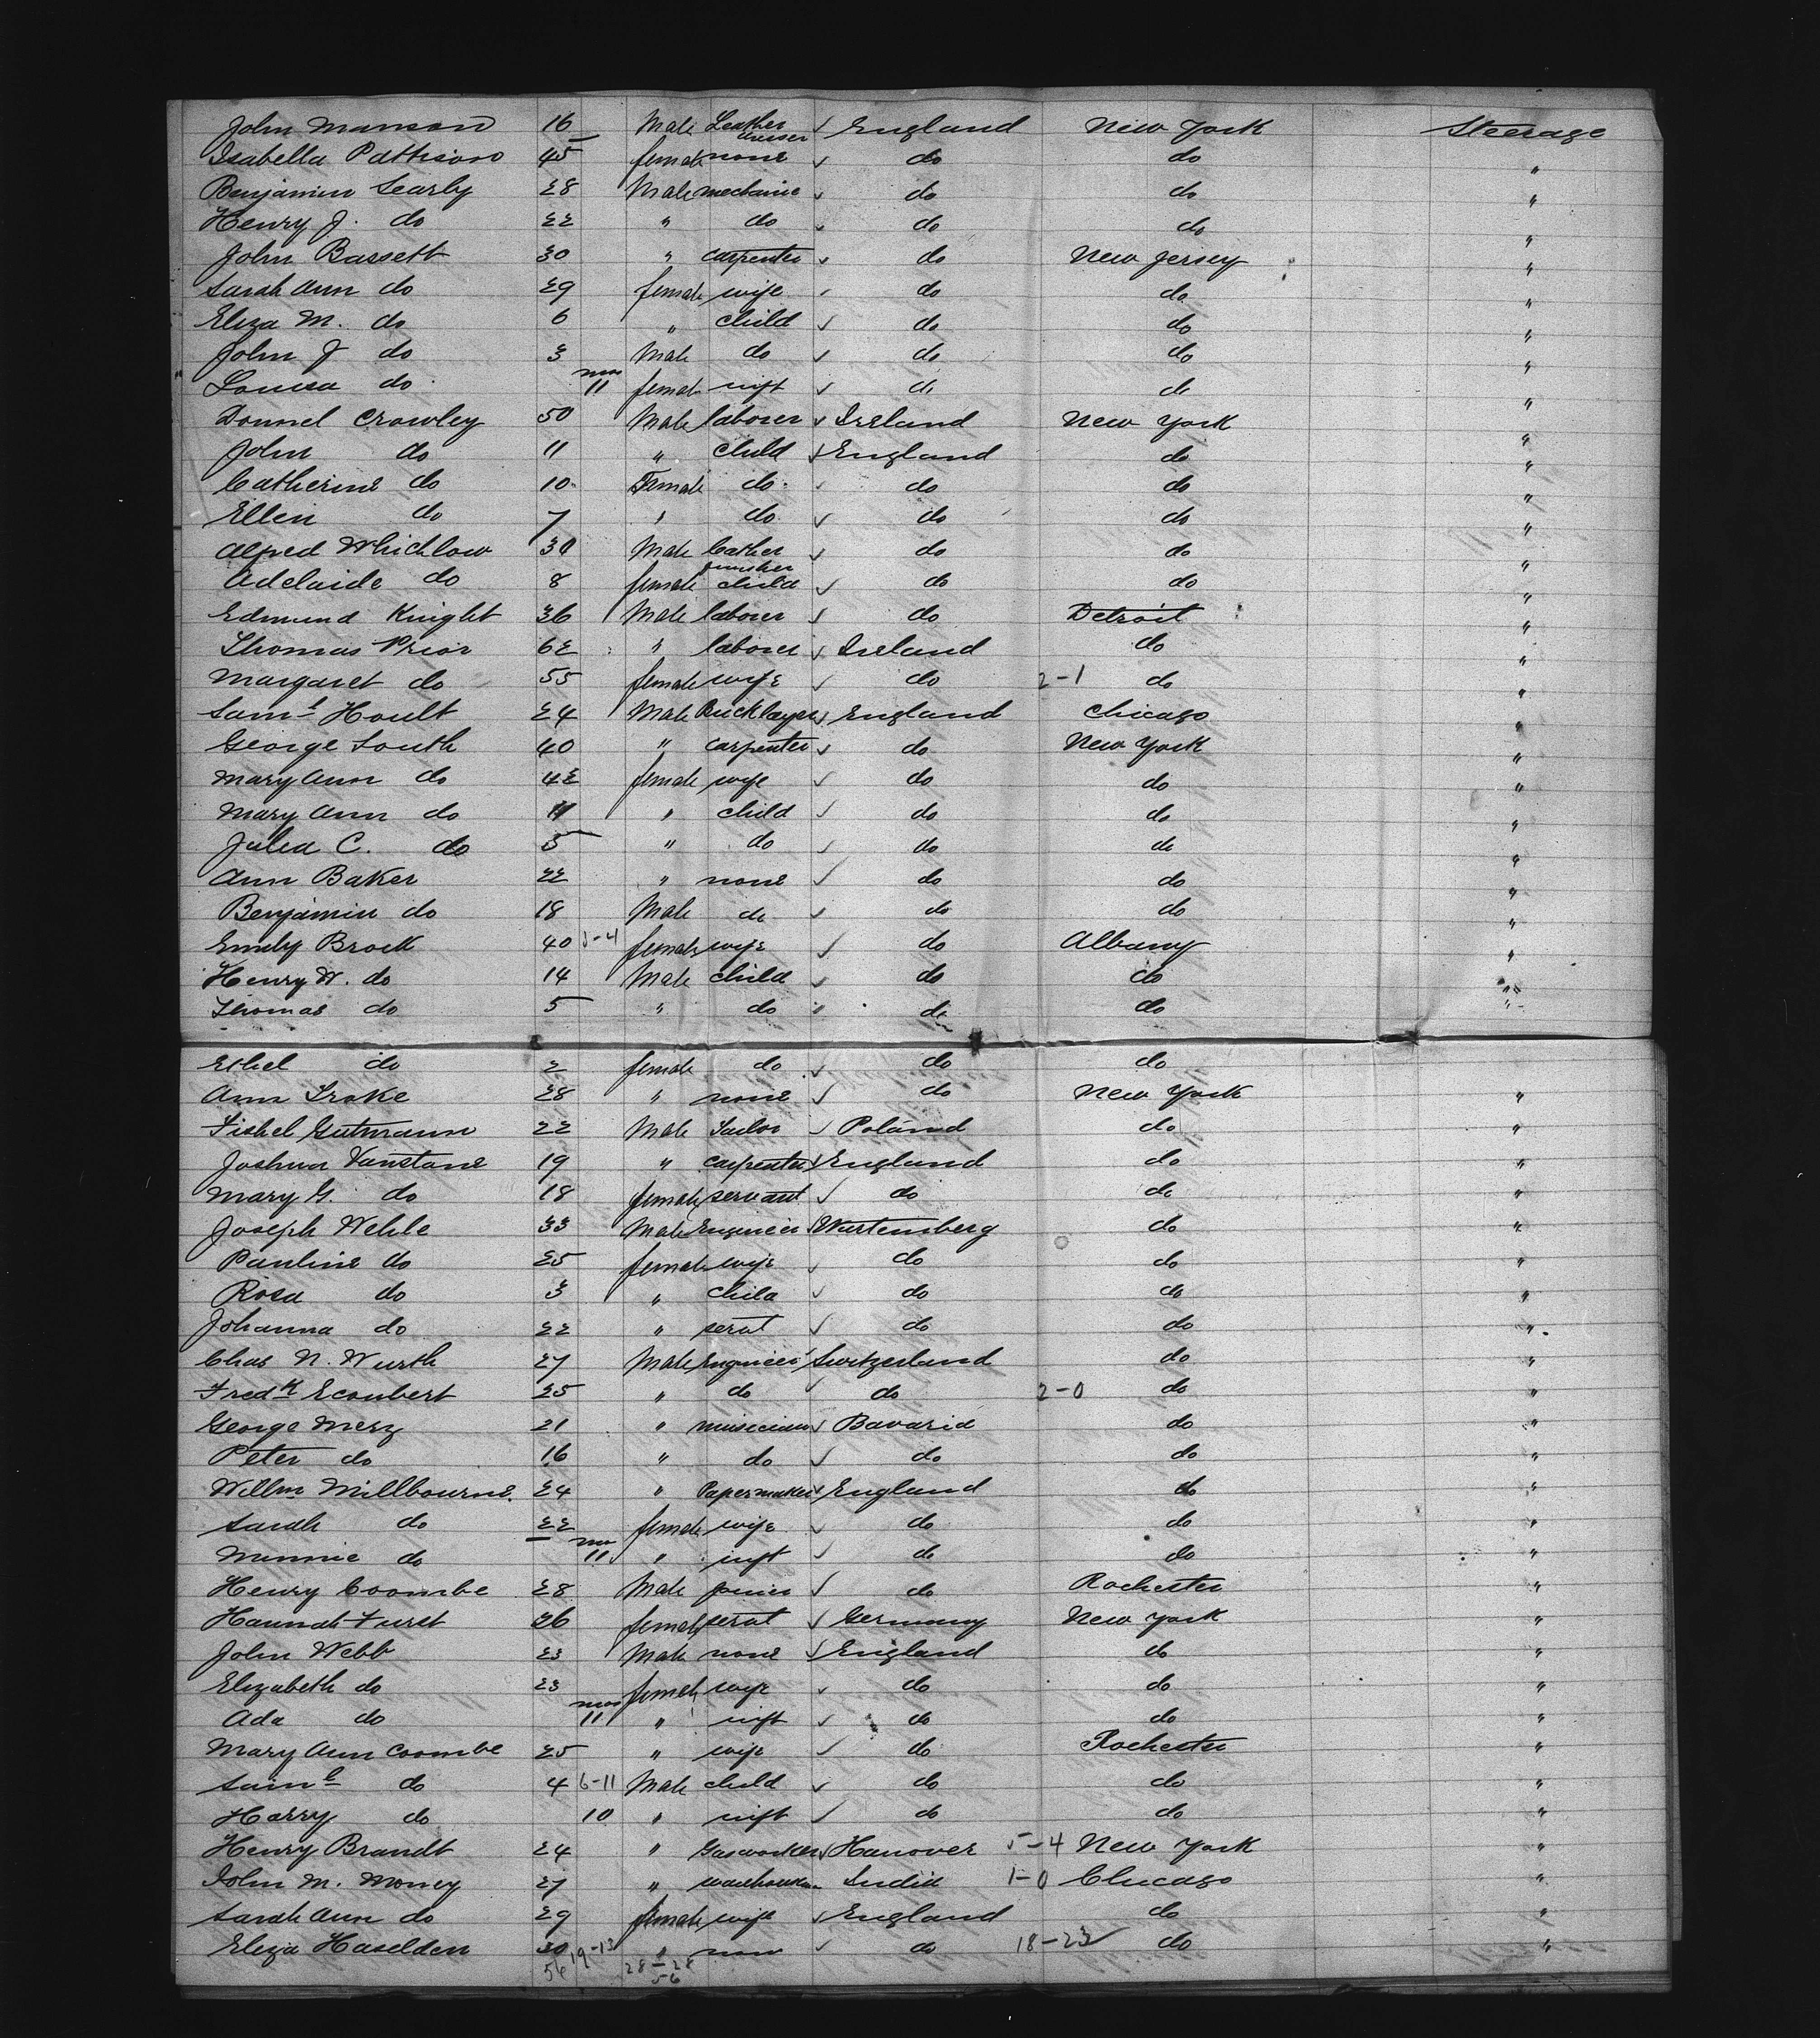 John Manson 16 Male Leather dresser ✓ England New York Steerage
Isabella Pattison 45 female none ✓ do do "
Benjamin Searly 28 Male mechanic ✓ do do "
Henry J. do 22 " do ✓ do do "
John Bassett 30 " carpenter ✓ do New Jersey "
Sarah Ann do 29 female wife ✓ do do "
Eliza M. do 6 " child ✓ do do "
John J do 3 Male do ✓ do do "
Louisa do mos 11 female inft ✓ do do "
Donnel Crowley 50 Male laborer ✓ Ireland New York "
John do 11 " child ✓ England do "
Catherine do 10 Female do ✓ do do "
Ellen do 7 " do ✓ do do "
Alfred Whichlow 30 Male leather ✓ do do "
Adelaide do 8 female child ✓ do do "
Edmund Knight 36 Male laborer ✓ do Detroit "
Thomas Prior 62 " laborer ✓ Ireland do "
Margaret do 55 female wife ✓ do 2-1 do "
Saml Hoult 24 Male Bricklayer ✓ England Chicago "
George South 40 " carpenter ✓ do New York "
Mary Ann do 42 female wife ✓ do do "
Mary Ann do 11 " child ✓ do do "
Julia C. do 5 " do ✓ do do "
Ann Baker 22 " none ✓ do do "
Benjamin do 18 Male do ✓ do do "
Emily Brock 40 female wife ✓ do Albany "
Henry W. do 14 Male child ✓ do do "
Thomas do 5 " do do do "
Ethel do 2 female do ✓ do do
Ann Trake 28 " none ✓ do New York "
Fishel Gutmann 22 Male Tailor ✓ Poland do "
Joshua Vanstane 19 " carpenter ✓ England do "
Mary G. do 18 female servant ✓ do do "
Joseph Wehle 33 Male Engineer ✓ Wurtemberg do "
Pauline do 25 female wife ✓ do do "
Rosa do 3 " child ✓ do do "
Johanna do 22 " servt ✓ do do "
Chas N. Wurth 27 Male Engineer Switzerland do "
Fredk Ecoubert 25 " do ✓ do 2-0 do "
George Merz 21 " musician ✓ Bavaria do "
Peter do 16 " do ✓ do do "
Willm Millbourne. 24 " Papermaker ✓ England do "
Sarah do 22 female wife ✓ do do "
Minnie do mos 11 " inft ✓ do do "
Henry Coombe 28 Male joiner ✓ do Rochester "
Hannah Furst 26 female servt ✓ Germany New York "
John Webb 23 Male none ✓ England do "
Elizabeth do 23 female wife ✓ do do "
Ada do mos 11 " inft ✓ do do "
Mary Ann Coombe 25 " wife ✓ do Rochester "
Saml do 4 6-11 Male child ✓ do do "
Harry do 10 " inft ✓ do do "
Henry Brandt 24 " Gasworker ✓ Hanover 5-4 New York "
John M. Money 27 " warehouseman India 1-0 Chicago "
Sarah Ann do 29 female wife ✓ England do "
Eliza Haselden 30 19-13 " none ✓ do 18-23 do "
56 28-28
56